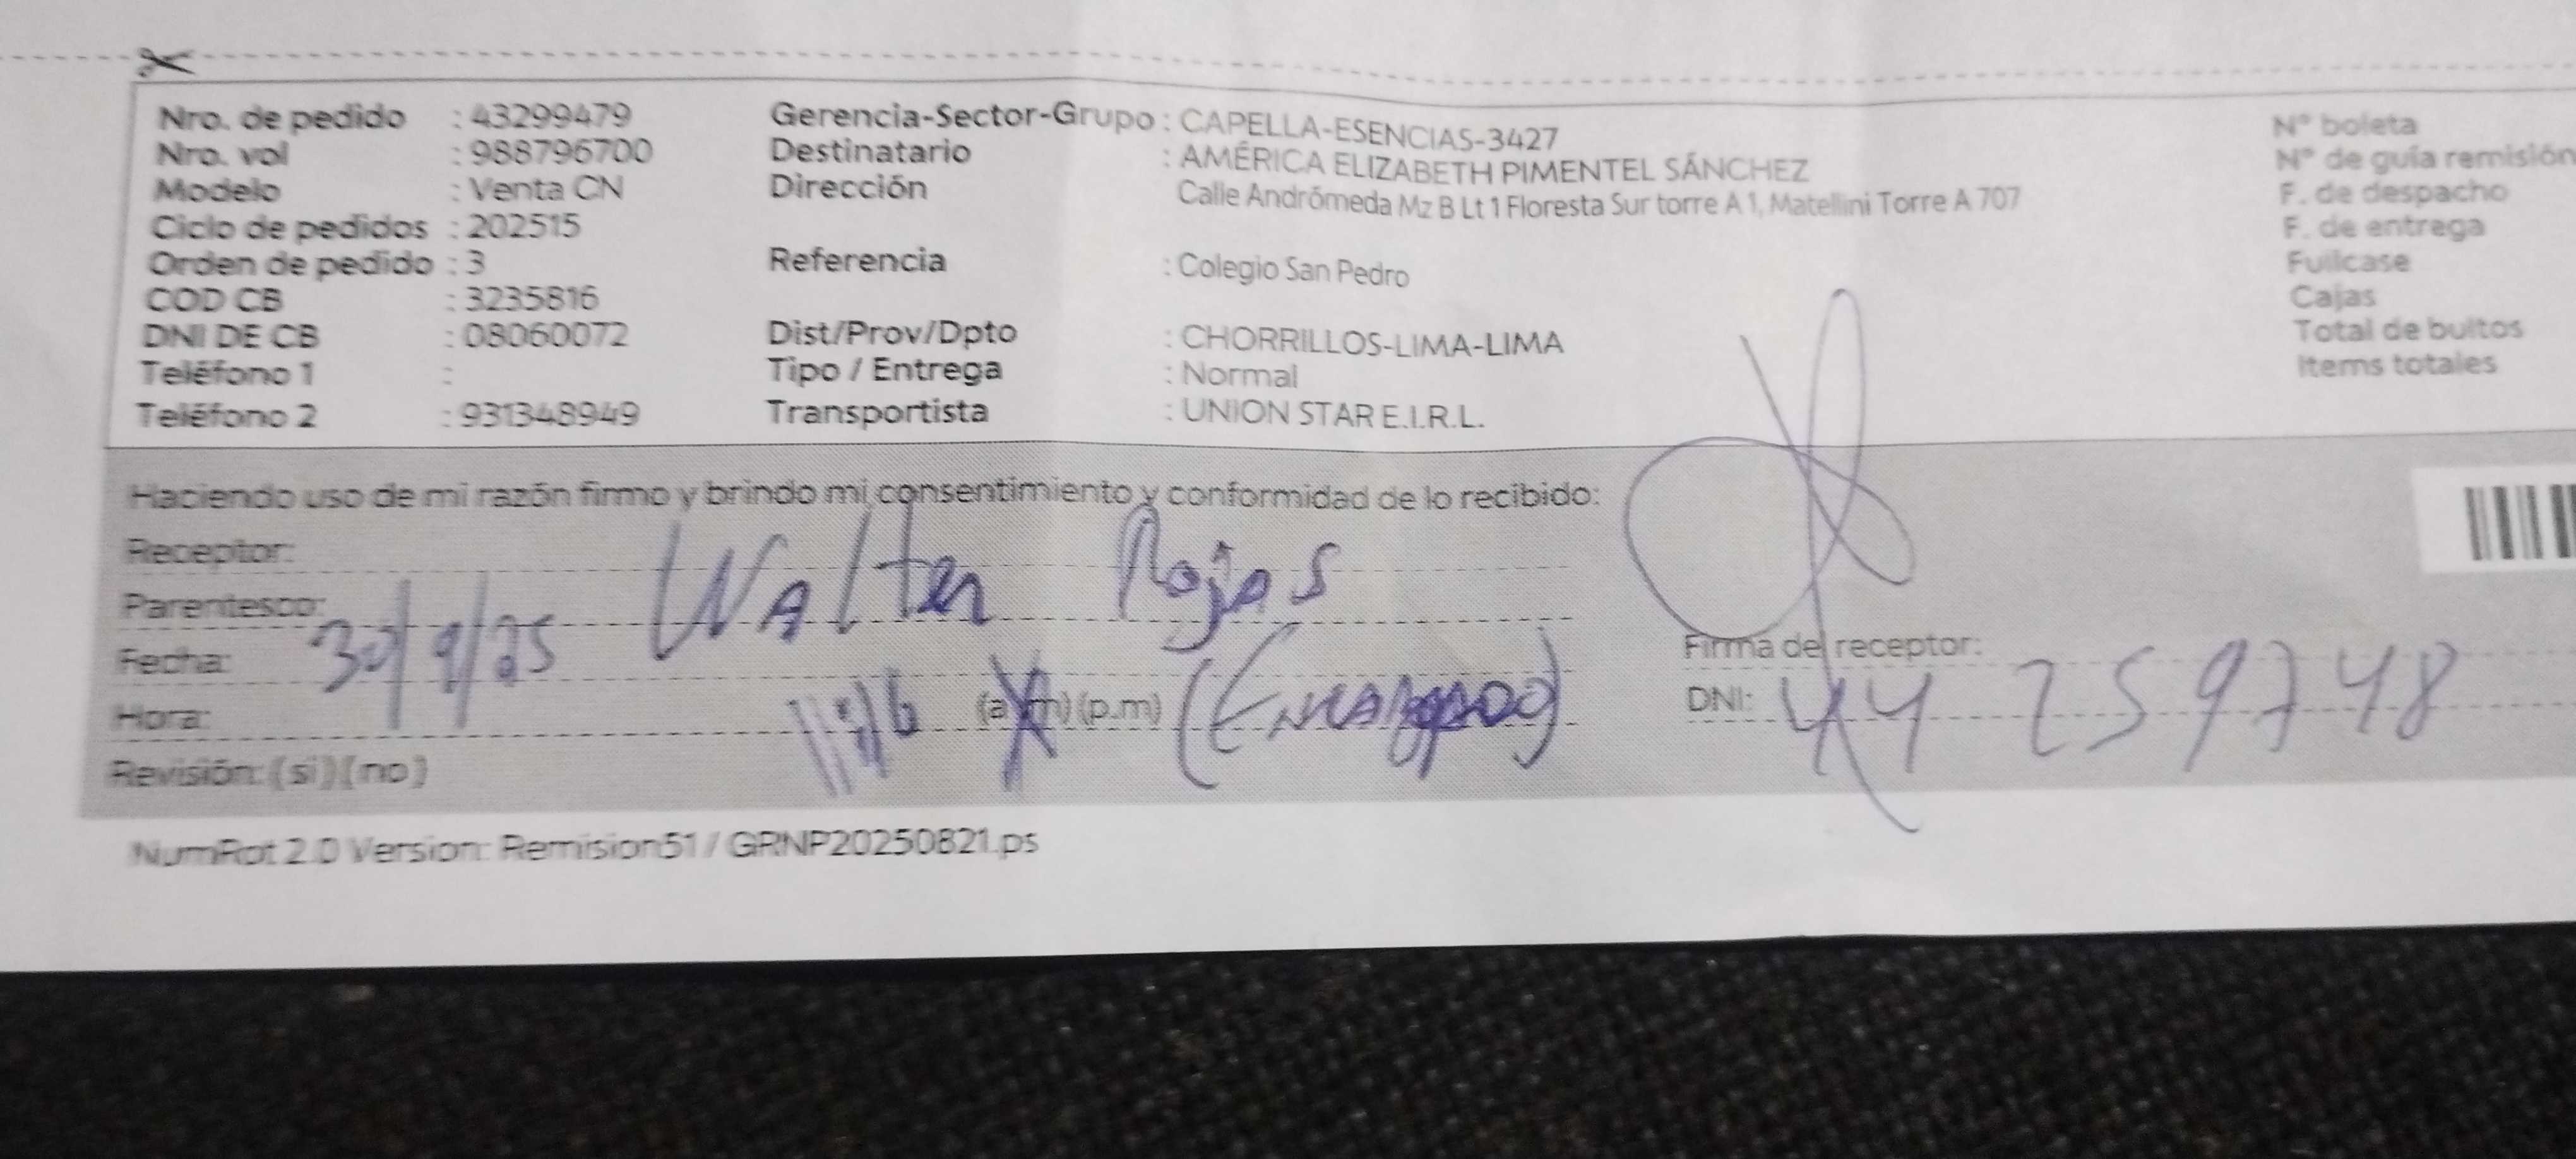 Nro. de pedido : 43299479
Nro. vol : 988796700
Modelo : Venta CN
Ciclo de pedidos : 202515
Orden de pedido : 3
COD CB : 3235816
DNI DE CB : 08060072
Teléfono 1 :
Teléfono 2 : 931348949
Gerencia-Sector-Grupo : CAPELLA-ESENCIAS-3427
Destinatario : AMÉRICA ELIZABETH PIMENTEL SÁNCHEZ
Dirección Calle Andrómeda Mz B Lt 1 Floresta Sur torre A 1, Matellini Torre A 707
Referencia : Colegio San Pedro
Dist/Prov/Dpto : CHORRILLOS-LIMA-LIMA
Tipo / Entrega : Normal
Transportista : UNION STAR E.I.R.L.
N° boleta
N° de guía remisión
F. de despacho
F. de entrega
Fullcase
Cajas
Total de bultos
Items totales
Haciendo uso de mi razón firmo y brindo mi consentimiento y conformidad de lo recibido:
Receptor: Walter Rojas
Parentesco:
Fecha: 30/9/25
Hora: (a.m) (p.m)
Revisión: (si) (no)
Firma del receptor:
DNI: 44259748
NumRot 2.0 Version: Remision51 / GRNP20250821.ps